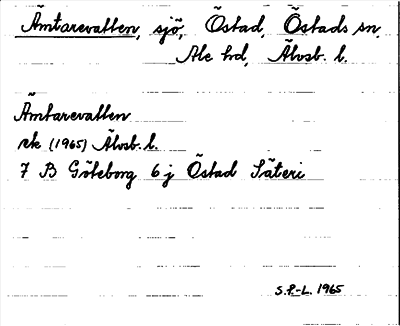 Ämtarevatten, sjö, Östad, Östads sn,
Ale hd, Älvsb. l.
Ämtarevatten
ek (1965) Älvsb. l.
7 B Göteborg 6 j Östad Säteri
S.P.-L. 1965